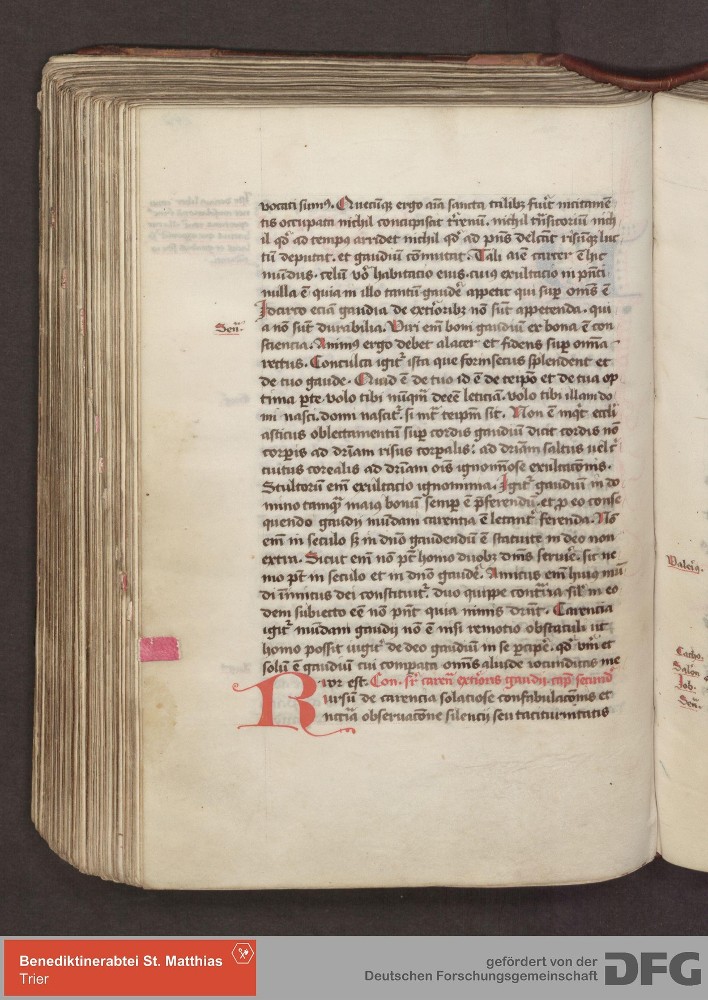 vocati sumꝰ. Quecūqꝫ ergo aīa sancta talibꝫ fuīt incitamē
tis occupata nichil concupiscat t̄renū. nichil trāsitoriū nich
il qd̄ ad tempꝰ arridet nichil qd̄ ad pn̄s delcāt risūqꝫ luc
tū deputat. et gaudiū cōmutat. Tali aīe carcer ē hic
mūdus. celū vō habitacio eius. cuius exultacio in pn̄ci
nulla ē quia in illo tantū gaudē appetit qui sup̄ om̄s ē
Idcirco eciā gaudia de exteriorībꝫ nō sūt appetenda. qui
Sen̄.
a nō sūt durabilia. Viri em̄ boni gaudiū ex bona ē con
sciencia. Animꝰ ergo debet alacer et fidens sup̄ om̄ia
rectus. Conculca igit̄ ista que forinsecus splendent et
de tuo gaude. Quid ē de tuo id ē de teip̄o et de tua op
tima p̄te. volo tibi nūqm̄ deeē leticiā. volo tibi illam do
mi nasci. domi nascit̄. si int̄ teip̄m sit. Non ē inqt̄ eccli
asticus oblectamentū sup̄ cordis gaudiū dicit cordis nō
corp̄is ad dr̄iam risus corp̄alis. ad dr̄iam saltus uel c̄
cuitus corealis ad dr̄iam ois ignominiose exultacōnis.
Stultorū em̄ exultacio ignominia. Igit̄ gaudiū in do
mino tamqꝫ maiꝰ bonū semp̄ ē p̄ferendū. et p̄ eo conse
quendo gaudij mūdam carentia ē letant̄ ferenda. Nō
em̄ in seculo sꝫ in dn̄o gaudendū ē statuite in deo non
extra. Sicut em̄ nō pt̄ homo duobꝫ dn̄is seruīe. sic ne
mo pt̄ in seculo et in dn̄o gaudē. Amicus em̄ huiꝰ mū
di in̄imicus dei constituit̄. duo quippe cont̄ria sil̄ in eo
dem subiecto eē nō pn̄t quia nimis dr̄nt. Carencia
igit̄ mūdam gaudij nō ē nisi remotio obstaculi ut
homo possit iugit̄ de deo gaudiū in se p̄cipē. qd̄ vnū et
solū ē gaudiū cui compata om̄is aliūde iocunditas me
ror est. Con. st̄. caren̄ exterioris gaudij. cap̄ secund̄
Rursū de carencia solaciose confabulacōnis et
nt̄ria obseruacōne silencij seu taciturnitatis
Cacho.
Salon̄
Job.
Sen̄.
Benediktinerabtei St. Matthias
Trier
gefördert von der
Deutschen Forschungsgemeinschaft
DFG